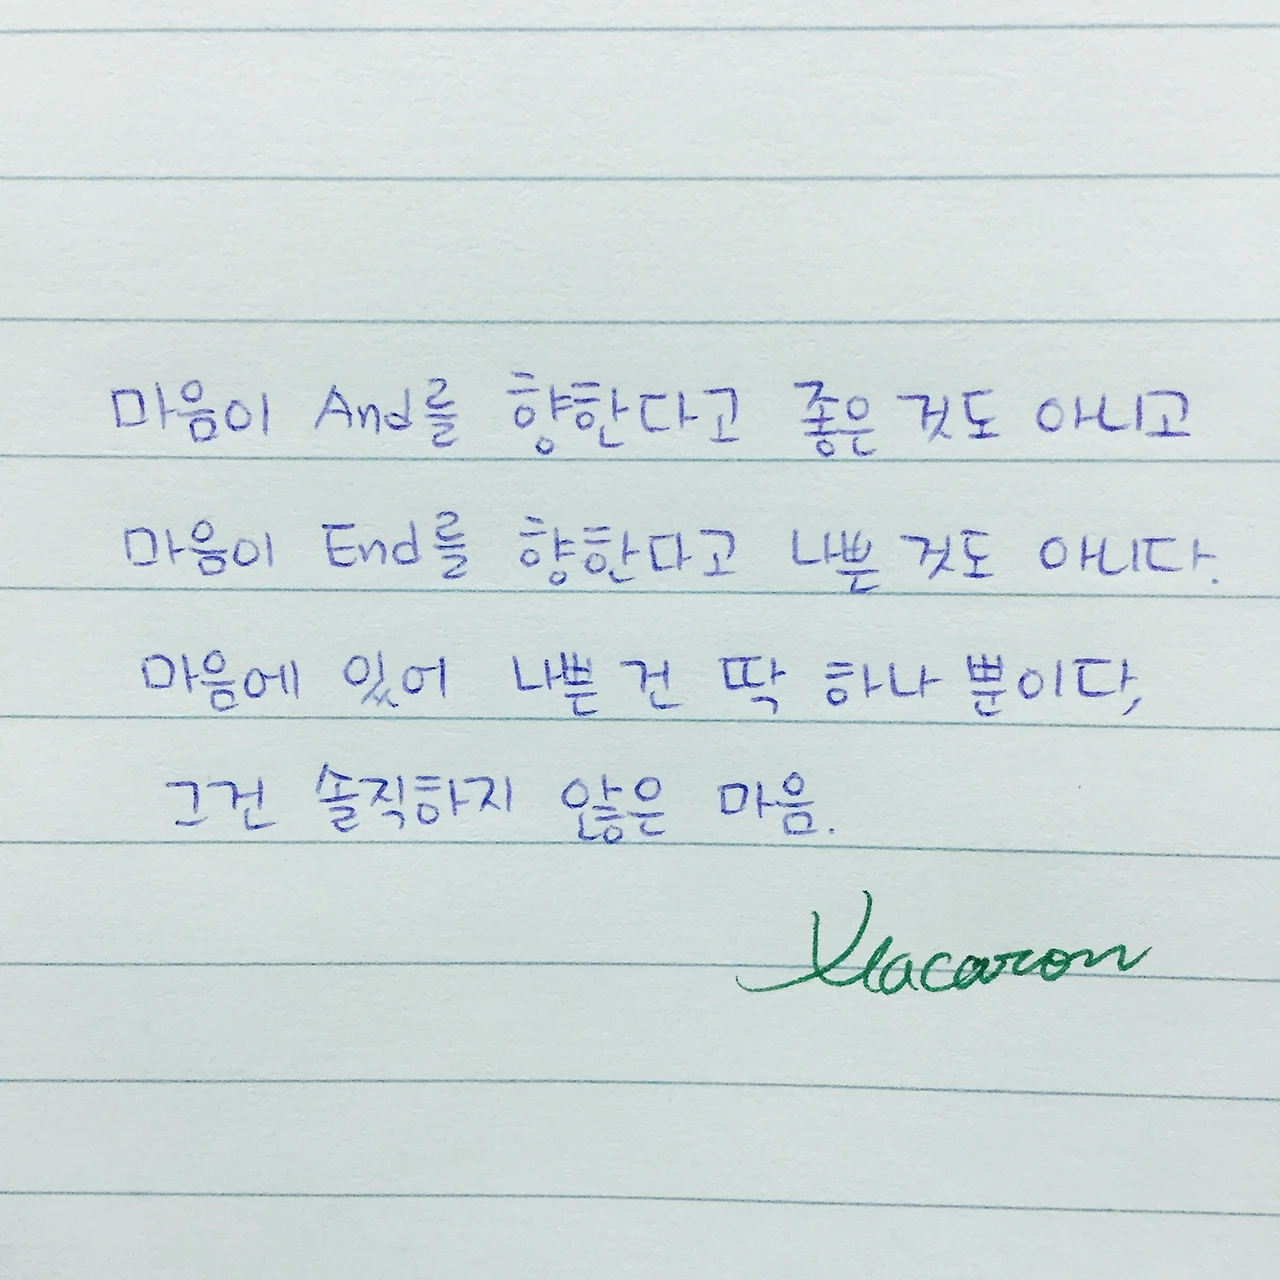 마음이 And를 향한다고 좋은 것도 아니고
마음이 End를 향한다고 나쁜 것도 아니다.
마음에 있어 나쁜 건 딱 하나 뿐이다,
그건 솔직하지 않은 마음.
Macaron